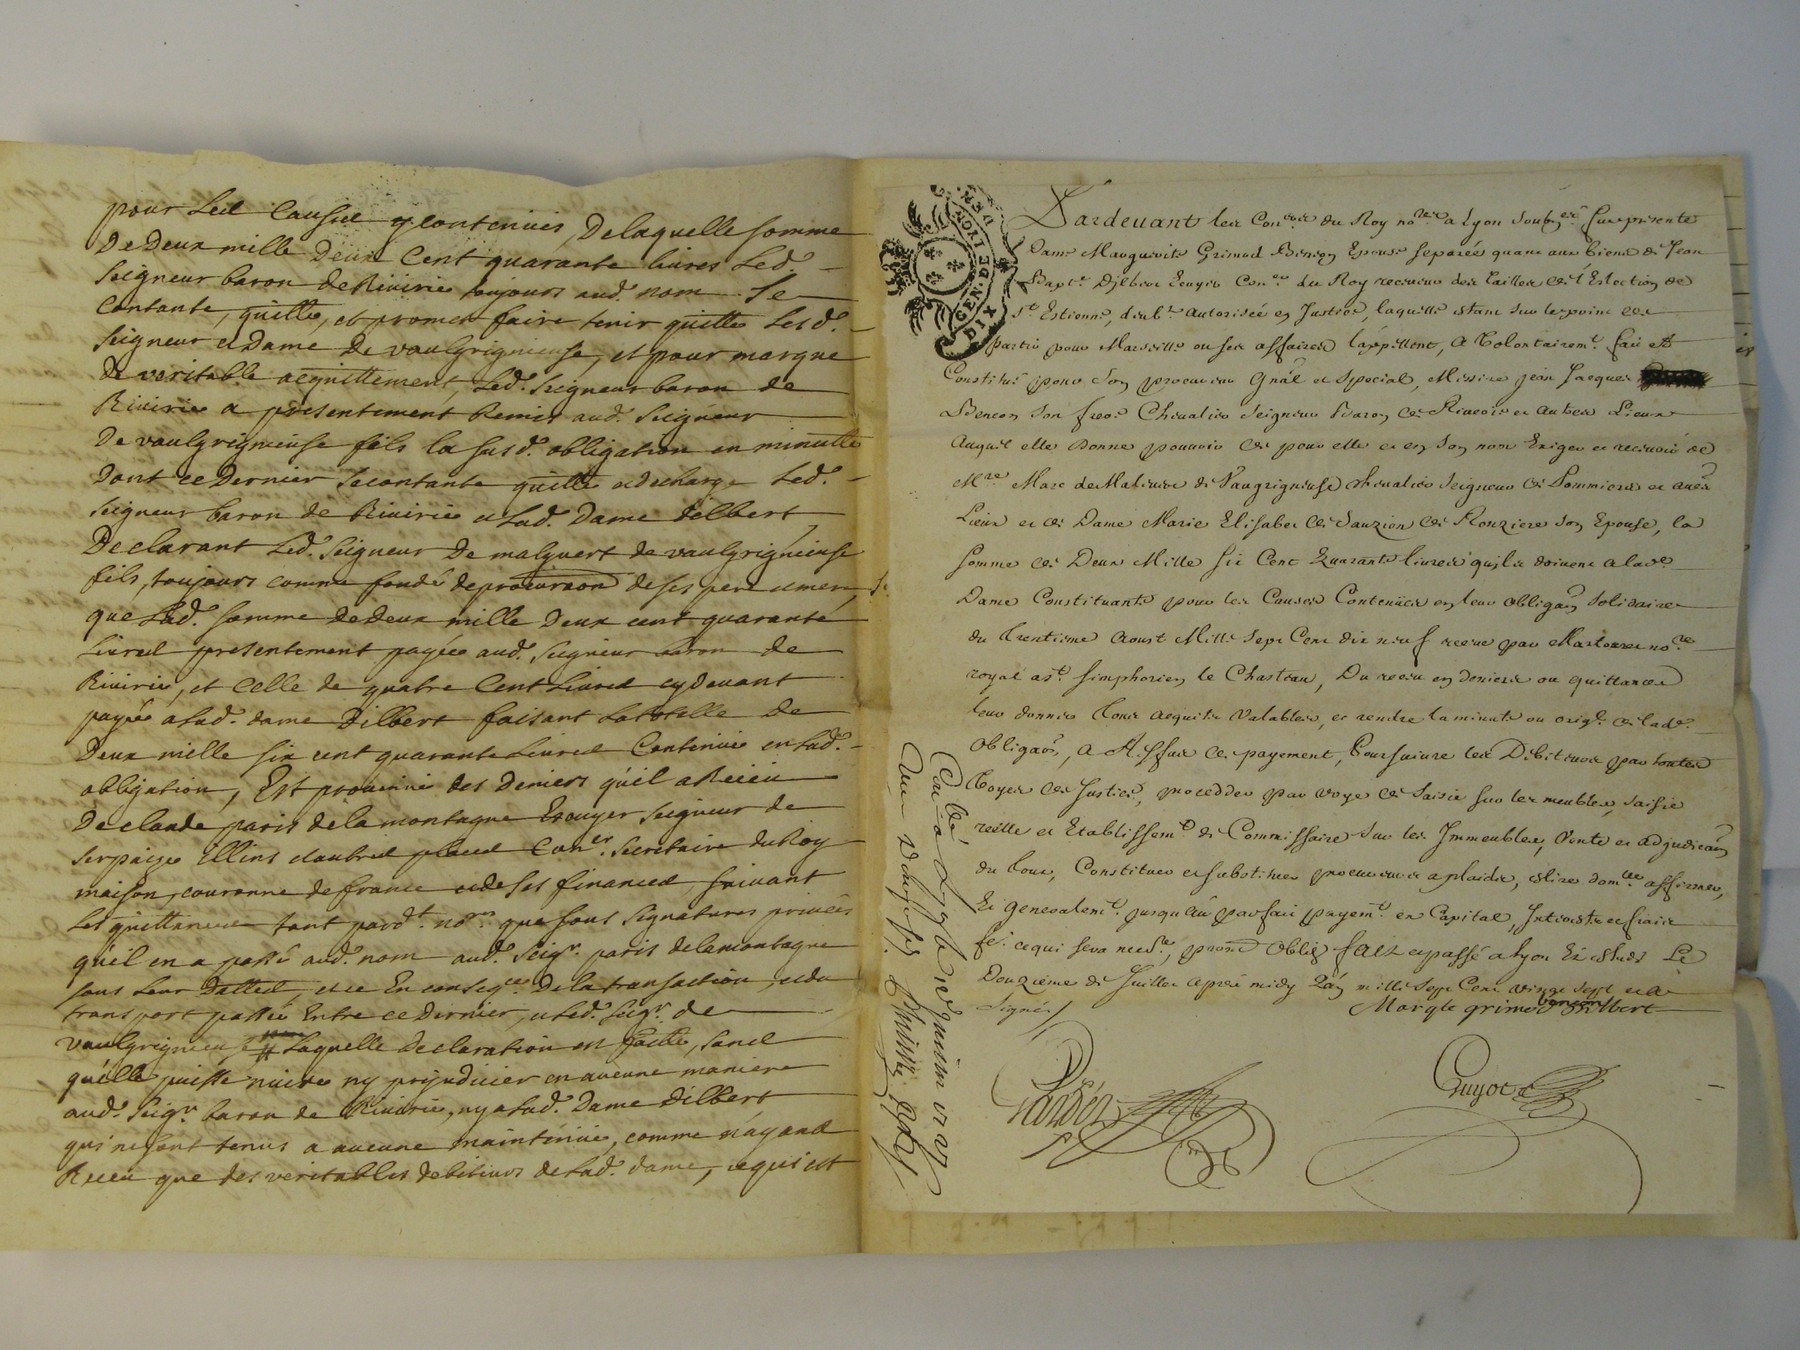 pour les Causes y contenües, De laquelle somme
De Deux mille Deux Cent quarante livres Led.
Seigneur baron de Rivirie toujours aud. nom se
Contante, quitte, et promet faire tenir quitte Lesd.
Seigneur et Dame De vaulgrigneuse, et pour marque
De veritable acquittement, Led. Seigneur baron de
Rivirie a presentement Remis aud. Seigneur
De vaulgrigneuse fils la susd. obligation en minutte
Dont ce Dernier se contante quitte et decharge Led.
Seigneur baron de Rivirie et Lad. Dame dilbert
Declarant Led. Seigneur De malyvert de vaulgrigneuse
fils, toujours comme fondé de procuraon de ses pere et mere
que Lad. somme de deux mille Deux cent quarante
Livres presentement payée aud. Seigneur baron de
Rivirie, et Celle de quatre Cent Livres cy devant
payée a Lad. dame Dilbert faisant La totelle De
Deux mille six cent quarante Livres Contenüe en Lad.
obligation, Est provenüe des Deniers qu'il a Receu
De claude paris de la montagne Escuyer Seigneur de
Serpaize Illins et autres places Con.er Secretaire du Roy
maison, couronne de france et de ses finances, suivant
Les quittances tant pard.t no.res que sous signatures privées
qu'il en a passé aud. nom aud. Seig.r paris de la montagne
sous Leur Dattes, et ce En conseq.ce De la transaction et du
transport passée Entre ce Dernier, et Led. Seig.r de
vaulgrigneuse Laquelle Declaration est faitte, sans
qu'elle puisse nuire ny prejudicier en aucune maniere
aud. Seig.r baron de Rivirie, ny a Lad. Dame dilbert
qui ne sont tenus a aucune maintenüe, comme n'ayant
Receu que des veritables debiteurs de Lad. dame, ce qui est
GEN. DE
DIX
Pardevant les Con.ers du Roy no.res a Lyon soub.nez fut presente
Dame Marguerite Grimod Benеon Epouse separée quant aux biens de Jean
Bapt.e Dilbert Ecuyer Con.er du Roy receveur des tailles de l'Eslection de
S.t Estienne, de luy autorisée en Justice, laquelle estant sur le point de
partir pour Marseille ou ses affaires l'appellent, a Volontairem.t fait et
Constitué pour son procureur gnal et special, Messire Jean Jacques
Beneon son frere Chevalier Seigneur Baron de Riverie et autres Lieux
Auquel elle Donne pouvoir de pour elle et en son nom Exiger et recevoir de
M.re Marc de Malivert de Vaugrigneuse chevalier Seigneur de Sommieres et aues
Lieux et de Dame Marie Elisabet de Sauzion de Rouziere son Epouse, la
somme de Deux Mille six Cent Quarante livres qu'ils doivent a lad.
Dame Constituante pour les Causes Contenües en leur obligaon solidaire
du trentieme Aoust Mille Sept Cent dix neuf receue par no.re
royal a S.t Simphorien le Chasteau, Du receu en deniers ou quittances
leur donner tous acquits Valables, et rendre la minute ou orig.l de lad.
Obligaon, a deffaut de payement, Poursuivre les Debiteurs par toutes
Voyes de Justice, proceder par voye de saisie sur les meubles, saisie
réelle et Etablissem.t de Commissaire sur les Immeubles, Vente et adjudicaon
du tout, Constituer et substituer procureurs a plaider, eslire dom.lle affirmer,
Et generalem.t jusqu'au parfait payem.t en Capital, Interests et frais
fe. ce qui sera necess.re, prom. Oblig. fait et passé a Lyon Es estudes Le
Douzieme de Juillet apres midy L'an mille Sept Cent vingt sept et a
Signé
Margte grimod beneon Dilbert
Guyot